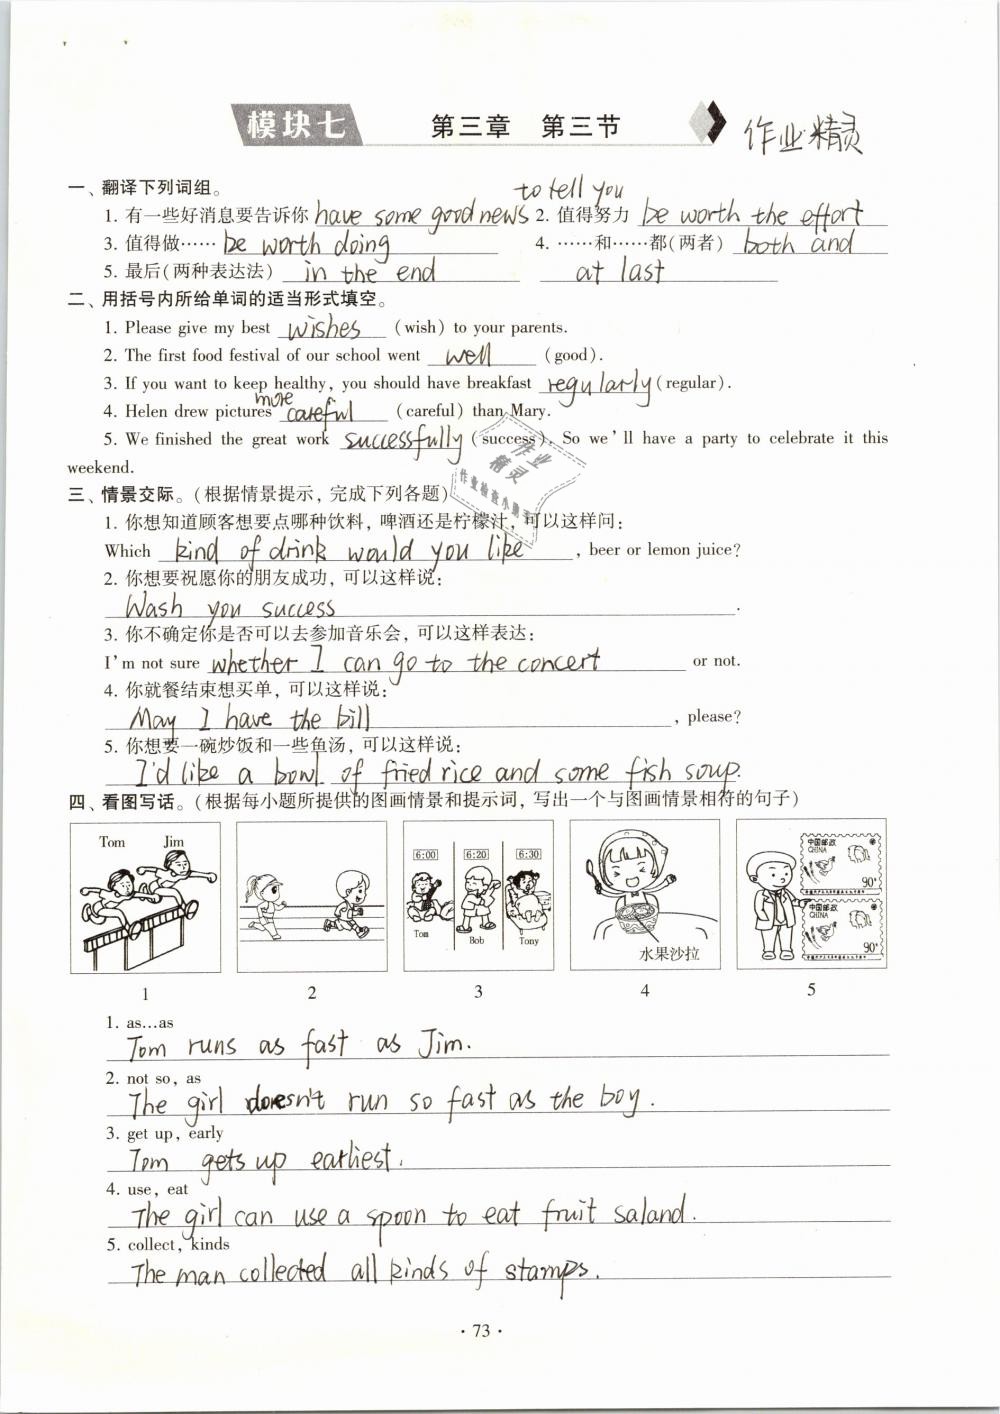 模块七 第三章 第三节 作业精灵
一、翻译下列词组。 to tell you
1. 有一些好消息要告诉你 have some good news 2. 值得努力 be worth the effort
3. 值得做…… be worth doing 4. ……和……都(两者) both and
5. 最后(两种表达法) in the end at last
二、用括号内所给单词的适当形式填空。
1. Please give my best wishes (wish) to your parents.
2. The first food festival of our school went well (good).
3. If you want to keep healthy, you should have breakfast regularly (regular).
4. Helen drew pictures more careful (careful) than Mary.
5. We finished the great work successfully (success). So we'll have a party to celebrate it this
weekend.
作业
精灵
作业检查小
三、情景交际。(根据情景提示，完成下列各题)
1. 你想知道顾客想要点哪种饮料，啤酒还是柠檬汁，可以这样问:
Which kind of drink would you like, beer or lemon juice?
2. 你想要祝愿你的朋友成功，可以这样说:
Wash you success.
3. 你不确定你是否可以去参加音乐会，可以这样表达:
I'm not sure whether I can go to the concert or not.
4. 你就餐结束想买单，可以这样说:
May I have the bill, please?
5. 你想要一碗炒饭和一些鱼汤，可以这样说:
I'd like a bowl of fried rice and some fish soup.
四、看图写话。(根据每小题所提供的图画情景和提示词，写出一个与图画情景相符的句子)
Tom Jim
6:00 6:20 6:30
Tom Bob Tony
水果沙拉
中国邮政
CHINA
90
中国邮政
CHINA
90
1 2 3 4 5
1. as…as
Tom runs as fast as Jim.
2. not so, as
The girl doesn't run so fast as the boy.
3. get up, early
Tom gets up earliest.
4. use, eat
The girl can use a spoon to eat fruit saland.
5. collect, kinds
The man collected all kinds of stamps.
· 73 ·